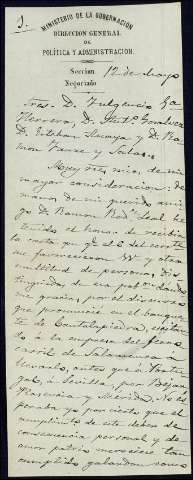 MINISTERIO DE LA GOBERNACION
DIRECCION GENERAL
DE
POLÍTICA Y ADMINISTRACION.
Seccion 12 de Mayo
Negociado
Sres. D. Fulgencio
Herrera, D.
D. Esteban y D. Ra-
mon y Salas.
Muy Sres. mios de mi
mayor consideracion: de
manos de mi querido ami-
go D. Ramon Leal he
tenido el honor de recibir
la carta que el 2 del corrte.
me favorecieron VV. y otra
multitud de personas, dis-
tinguidas, de esa poblacion dando-
me gracias, por el discurso
que pronuncié en el banque-
te de Cantalapiedra,
á la empresa del ferro
carril de Salamanca á
llevarlo, antes que á Portu-
gal, á Sevilla, por Bejar
Plasencia y Mérida. No es-
peraba yo por cierto que el
cumplimiento de este deber de
conveniencia personal y de
amor patrio mereciese tan
cumplido galardon como